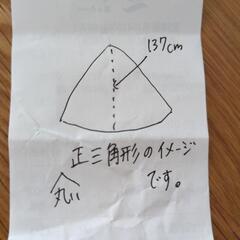 137cm
正三角形のイメージ
です。
丸い